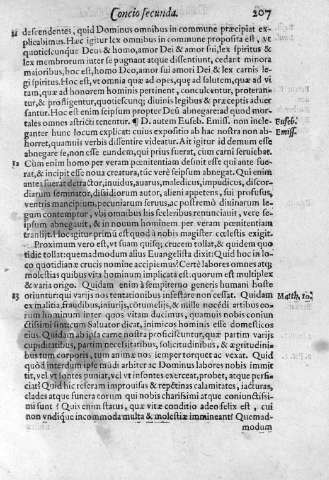 Concio secunda. 207
descendentes, quid Dominus omnibus in commune præcipiat ex
plicabimus. Hæc igitur lex omnibus in commune proposita est, vt
quotiescunque Deus & homo, amor Dei & amor sui, lex spiritus &
lex membrorum inter se pugnant atque dissentiunt, cedant minora
maioribus, hoc est, homo Deo, amor sui amori Dei & lex carnis le
gi spiritus. Hoc est, vt omnia quæ ad opes, quæ ad salutem, quæ ad vi
tam, quæ ad honorem hominis pertinent, conculcentur, proteran-
tur, & prostigentur, quotiescunque diuinis legibus & præceptis aduer
santur. Hoc est enim seipsum propter Deum abnegare: ad quod mor-
tales omnes astricti tenentur. ¶ D. autem Euseb. Emiss. non inele- Euseb.
ganter hunc locum explicat: cuius expositio ab hac nostra non ab- Emiss.
horret, quamuis verbis dissentire videatur. Ait igitur id demum esse
abnegare se, non esse eundem, qui prius fuerat, cum carni seruiebat.
Cum enim homo per veram pœnitentiam desinit esse qui ante fue-
rat, & incipit esse noua creatura, tūc verè seipsum abnegat. Qui enim
antea fuerat detractor, inuidus, auarus, maledicus, impudicus, discor-
diarum seminator, dissidiorum autor, alieni appetens, sui profusus,
ventris mancipium, pecuniarum seruus, ac postremò diuinarum le-
gum contemptor, vbi omnibus his sceleribus renunciauit, verè se-
ipsum abnegauit, & in nouum hominem per veram pœnitentiam
transijt. Hoc igitur primū est quod à nobis magister cœlestis exigit.
Proximum verò est, vt suam quisque crucem tollat, & quidem quo
tidie tollat, quemadmodum alius Euangelista dixit: Quid hoc in lo-
co quotidianæ crucis nomine accipiemus? Certè labores omnes atque
molestias quibus vita hominum implicata est: quorum est multiplex
& varia origo. Quidam enim à sempiterno generis humani hoste
13 oriuntur qui varijs nos tentationibus infestare non cessat. Quidam Matth. 10.
ex malitia, fraudibus, iniurijs, cōtumelijs, & mille nocēdi artibus eo-
rum hominum inter quos vitam ducimus, quamuis nobis coniun
ctissimi sint: cum Saluator dicat, inimicos hominis esse domesticos
eius. Quidam ab ipsa carne nostra proficiscuntur, quæ partim varijs
cupiditatibus, partim necessitatibus, solicitudinibus, & ægritudini-
bus tum corporis, tum animæ nos semper torquet ac vexat. Quid
quòd interdum ipse mudi arbiter ac Dominus labores nobis immit
tit, vel vt sontes puniat, vel vt insontes exerceat, probet, atque perfi-
ciat? Quid hic referam improuisas & repētinas calamitates, iacturas,
clades atque funera eorum qui nobis charissimi atque coniunctissi-
mi sunt? Quis enim status, quæ vitæ conditio adeo felix est, cui
non vndique incommoda multa & molestiæ immineant? Quemad-
modum